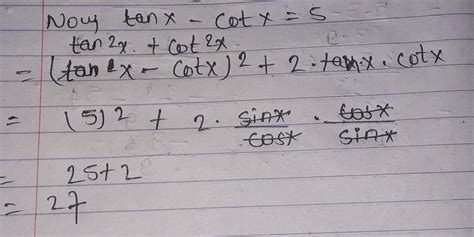 Now, tan x - cot x = 5
tan²x + cot²x
= (tan x - cotx)² + 2·tan x · cotx
= (5)² + 2 · sinx/cosx · cosx/sinx
= 25+2
= 27